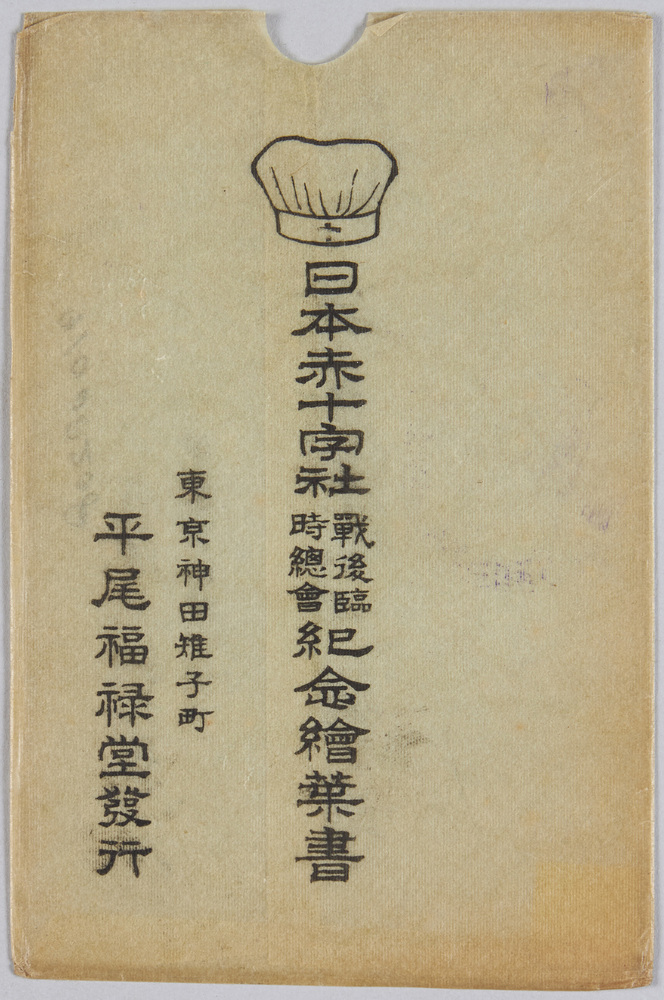 日本赤十字社戰後臨時總會紀念繪葉書
東京神田雉子町
平尾福禄堂發行